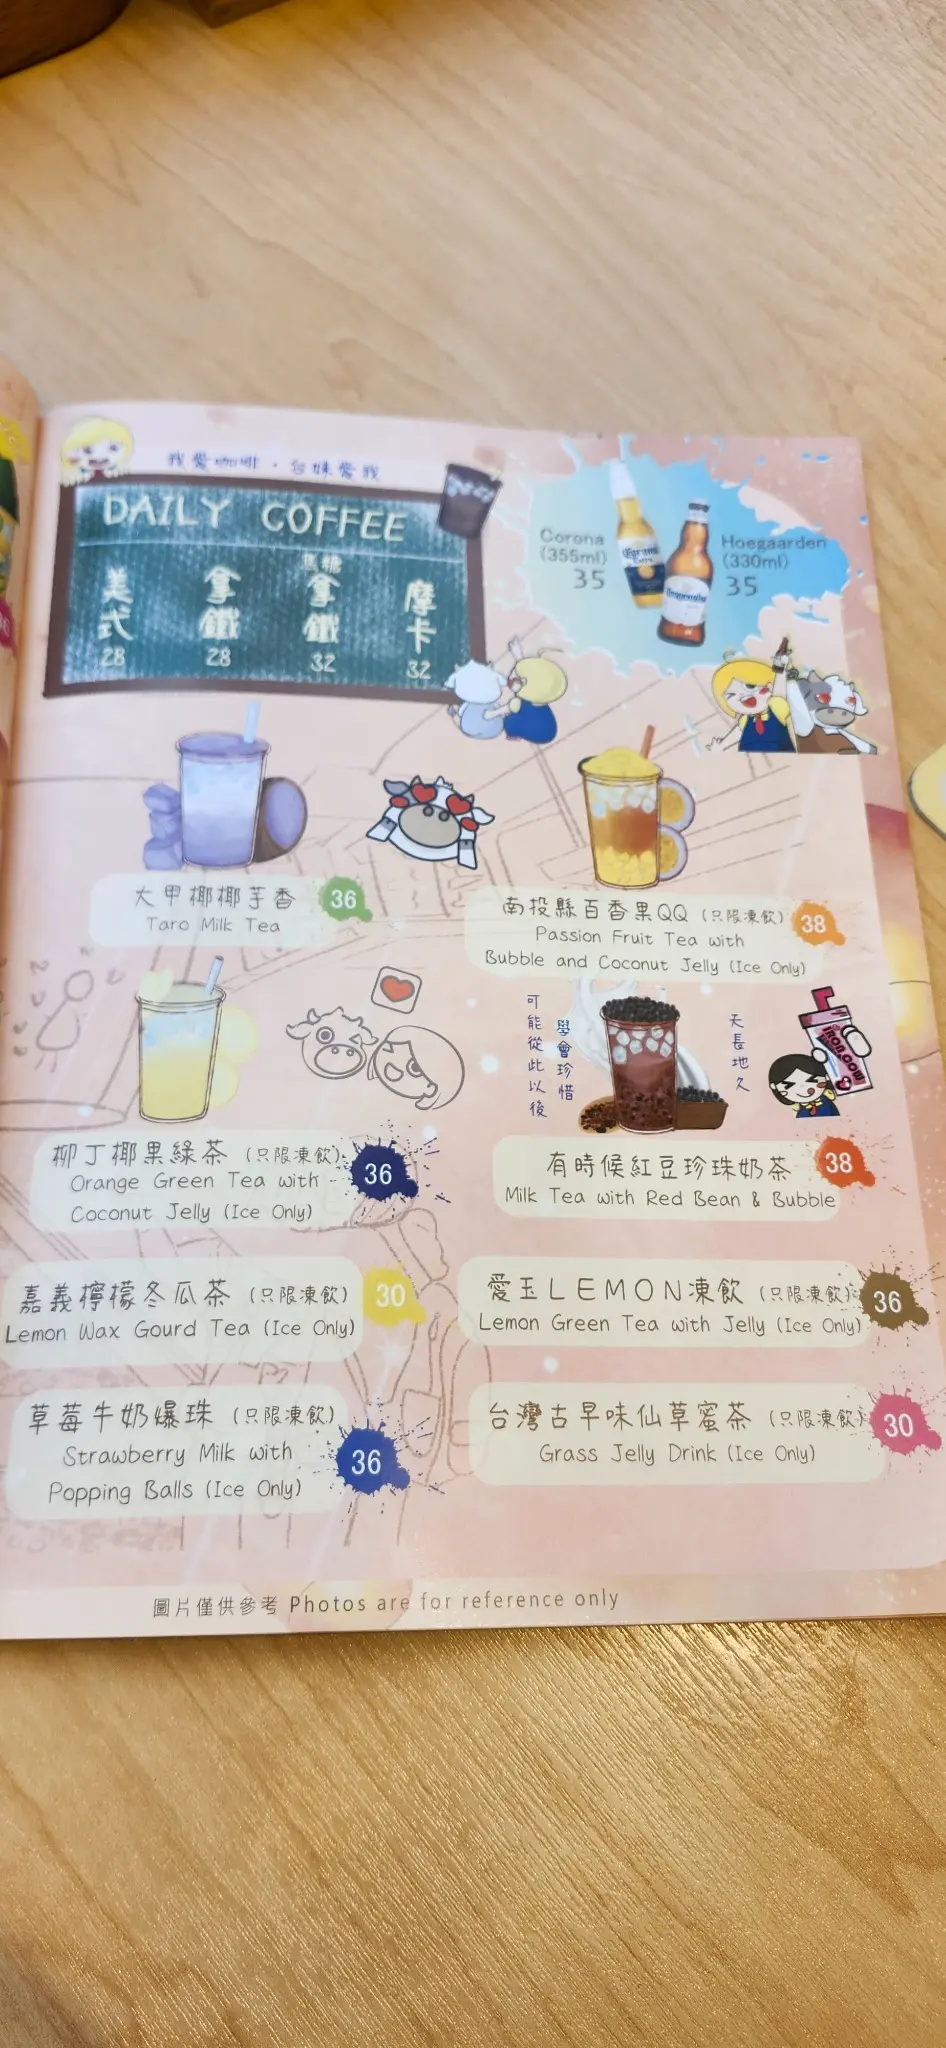 我愛咖啡·台妹愛我
DAILY COFFEE
美式
28
拿鐵
28
焦糖
拿鐵
32
摩卡
32
Corona
(355ml)
35
Hoegaarden
(330ml)
35
大甲椰椰芋香
Taro Milk Tea
36
南投縣百香果QQ (只限凍飲)
Passion Fruit Tea with
Bubble and Coconut Jelly (Ice Only)
38
柳丁椰果綠茶 (只限凍飲)
Orange Green Tea with
Coconut Jelly (Ice Only)
36
可能從此以後
學會珍惜
天長地久
有時候紅豆珍珠奶茶
Milk Tea with Red Bean & Bubble
38
嘉義檸檬冬瓜茶 (只限凍飲)
Lemon Wax Gourd Tea (Ice Only)
30
愛玉LEMON凍飲 (只限凍飲)
Lemon Green Tea with Jelly (Ice Only)
36
草莓牛奶爆珠 (只限凍飲)
Strawberry Milk with
Popping Balls (Ice Only)
36
台灣古早味仙草蜜茶 (只限凍飲)
Grass Jelly Drink (Ice Only)
30
圖片僅供參考 Photos are for reference only